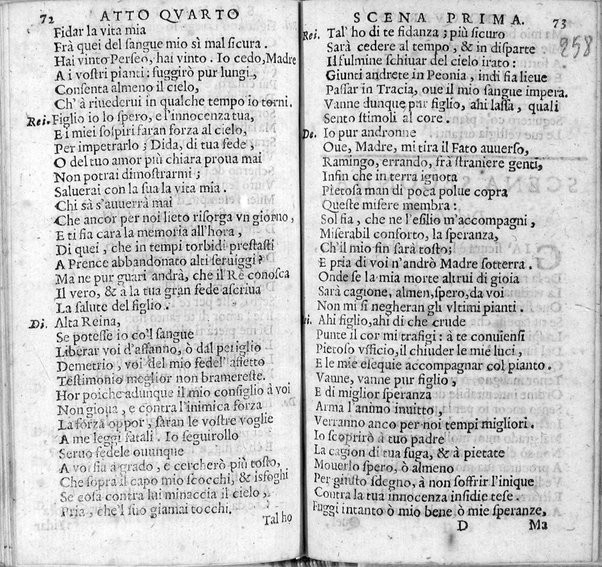 72 ATTO QVARTO
Fidar la vita mia
Frà quei del sangue mio sì mal sicura.
Hai vinto Perseo, hai vinto. Io cedo, Madre
A i vostri pianti: fuggirò pur lungi,
Consenta almeno il cielo,
Ch' à riuederui in qualche tempo io torni.
Rei. Figlio io lo spero, e l'innocenza tua,
E i miei sospiri faran forza al cielo,
Per impetrarlo; Dida, di tua fede,
O del tuo amor più chiara proua mai
Non potrai dimostrarmi;
Saluerai con la sua la vita mia.
Chi sà s'auuerrà mai
Che ancor per noi lieto risorga vn giorno,
E ti sia cara la memoria all'hora,
Di quei, che in tempi torbidi prestasti
A Prence abbandonato alti seruiggi?
Ma ne pur guari andrà, che il Rè conosca
Il vero, & à la tua gran fede ascriua
La salute del figlio.
Di. Alta Reina,
Se potesse io co'l sangue
Liberar voi d'affanno, ò dal periglio
Demetrio, voi del mio fedel' affetto
Testimonio meglior non bramereste.
Hor poiche adunque il mio consiglio à voi
Non gioua, e contra l'inimica forza
La forza oppor, saran le vostre voglie
A me leggi fatali. Io seguirollo
Seruo fedele ouunque
A vo sia à grado, e cercherò più tosto,
Che sopra il capo mio scocchi, & isfoghi
Se cosa contra lui minaccia il cielo,
Pria, che'l suo giamai tocchi.
Tal ho
SCENA PRIMA. 73
258
Rei. Tal' ho di te fidanza; più sicuro
Sarà cedere al tempo, & in disparte
Il fulmine schiuar del cielo irato:
Giunti andrete in Peonia, indi fia lieue
Passar in Tracia, oue il mio sangue impera.
Vanne dunque pur figlio, ahi lassa, quali
Sento stimoli al core.
De. Io pur andronne
Oue, Madre, mi tira il Fato auuerso,
Ramingo, errando, frà straniere genti,
Infin che in terra ignota
Pietosa man di poca polue copra
Queste misere membra:
Sol fia, che ne l'esilio m'accompagni,
Miserabil conforto, la speranza,
Ch'il mio fin sarà tosto;
E pria di voi n'andrò Madre sotterra.
Onde se la mia morte altrui di gioia
Sarà cagione, almen, spero, da voi
Non mi si negheran gli vltimi pianti.
Rei. Ahi figlio, ahi di che crude
Punte il cor mi trafigi: à te conuiensi
Pietoso vfficio, il chiuder le mie luci,
E le mie elequie accompagnar col pianto.
Vanne, vanne pur figlio,
E di miglior speranza
Arma l'animo inuitto,
Verranno anco per noi tempi migliori.
Io scoprirò à tuo padre
La cagion di tua fuga, & à pietate
Mouerlo spero, ò almeno
Per giusto sdegno, à non soffrir l'inique
Contra la tua innocenza insidie tese.
Fuggi intanto ò mio bene ò mie speranze,
D Ma